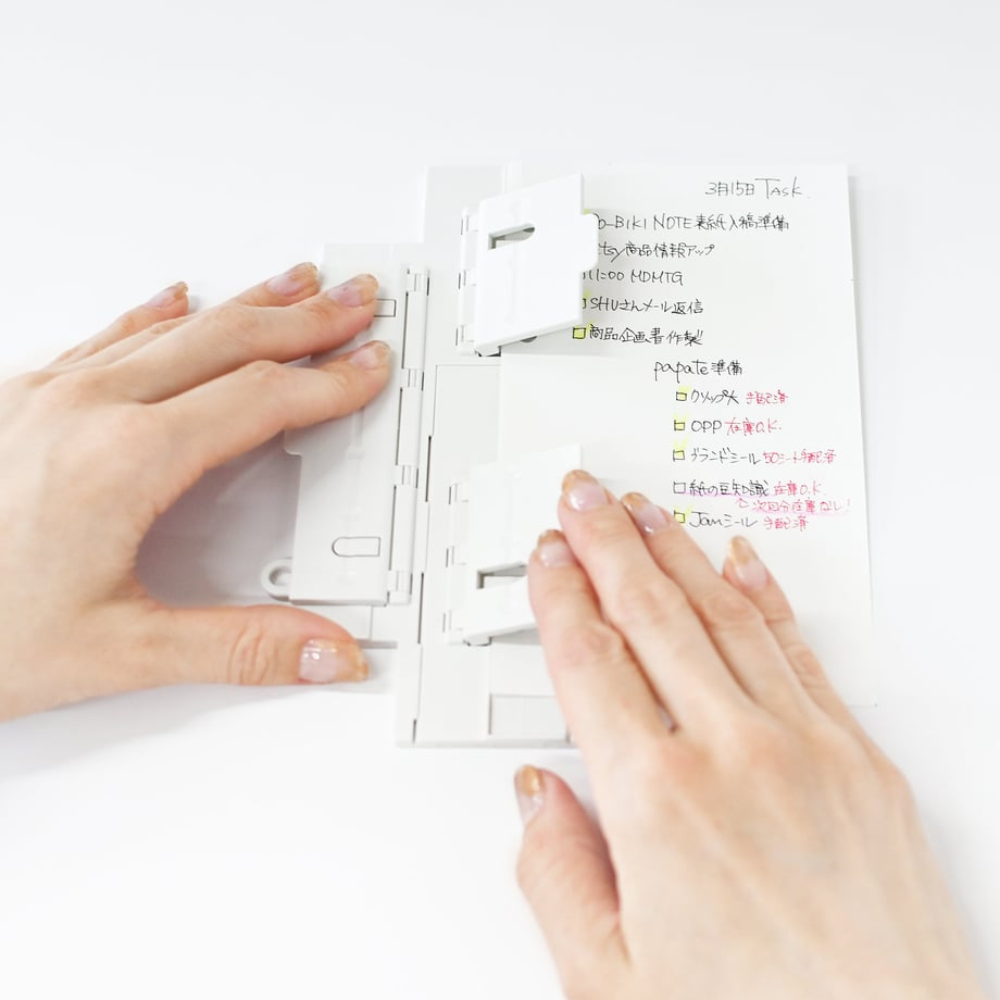 3月15日 Task
o-BIKI NOTE 表紙入稿準備
tsy商品情報アップ
11:00 MDMTG
SHUさんメール返信
商品企画書作製!!
papate準備
クリップ大 手配済
OPP 在庫O.K.
ブランドシール 50シート手配済
紙の豆知識 在庫O.K.
次回分在庫なし!
Jamシール 手配済